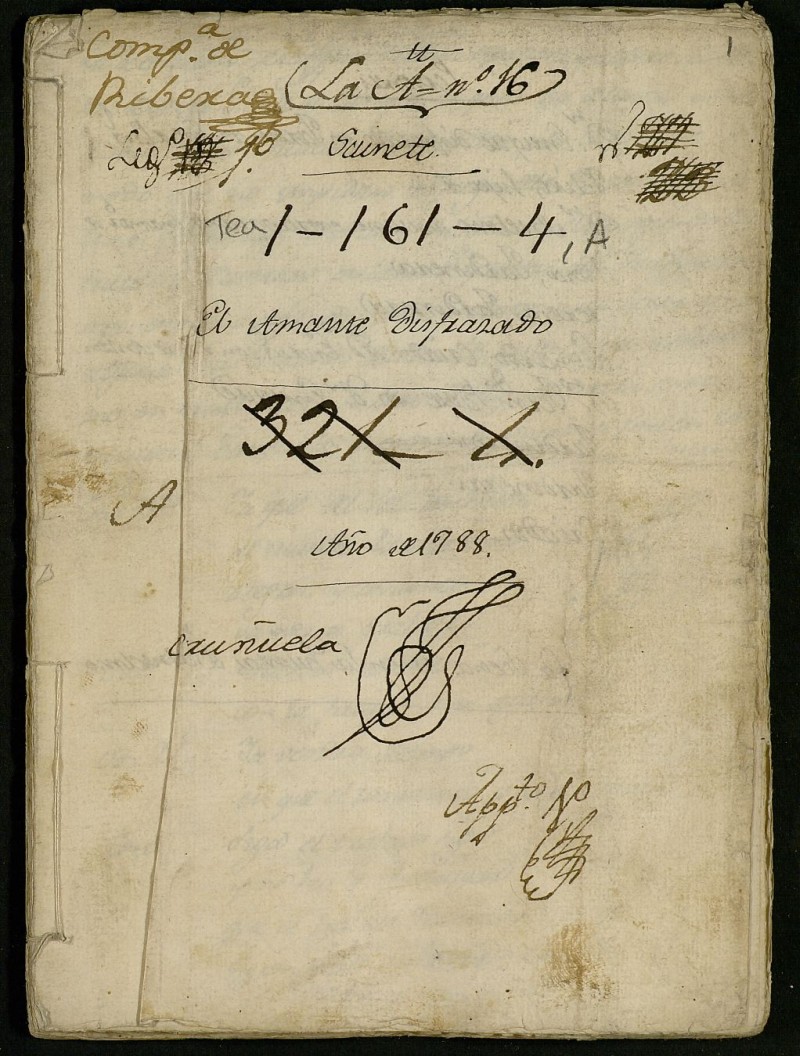 1
Comp.ª de
Ribera
La A.tt nº. 16
Leg.º
Sainete.
Tea 1-161-4, A
El Amante Disfrazado
321-4.
A
Año de 1788.
Cruñuela
App.to